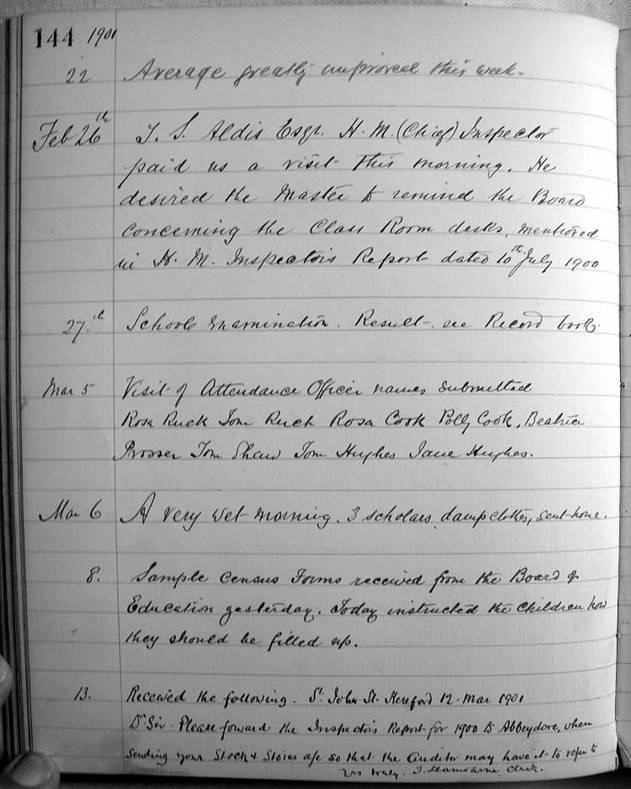 144 1901
22 Average greatly improved this week.
Feb 26th T. S. Aldis Esqr. H. M. (Chief) Inspector
paid us a visit this morning. He
desired the Master to remind the Board
concerning the Class Room desks, mentioned
in H. M. Inspector's Report dated 10th July 1900
27.th Schools Examination. Result - see Record book.
Mar 5 Visit of Attendance Officer names submitted
Rosa Ruck Tom Ruck Rosa Cook Polly Cook, Beatrice
Prosser Tom Shaw Tom Hughes Jane Hughes.
Mar 6 A very wet morning. 3 scholars, damp clothes, sent home.
8. Sample Census Forms received from the Board of
Education yesterday. Today instructed the Children how
they should be filled up.
13. Received the following. St. John St. Hereford 12 Mar 1901
Dr Sir - Please forward the Inspector's Report for 1900 to Abbeydore, when
sending your Stock & Stores a/c so that the Auditor may have it to refer to
Yrs truly. T. Llanwarne Clerk.